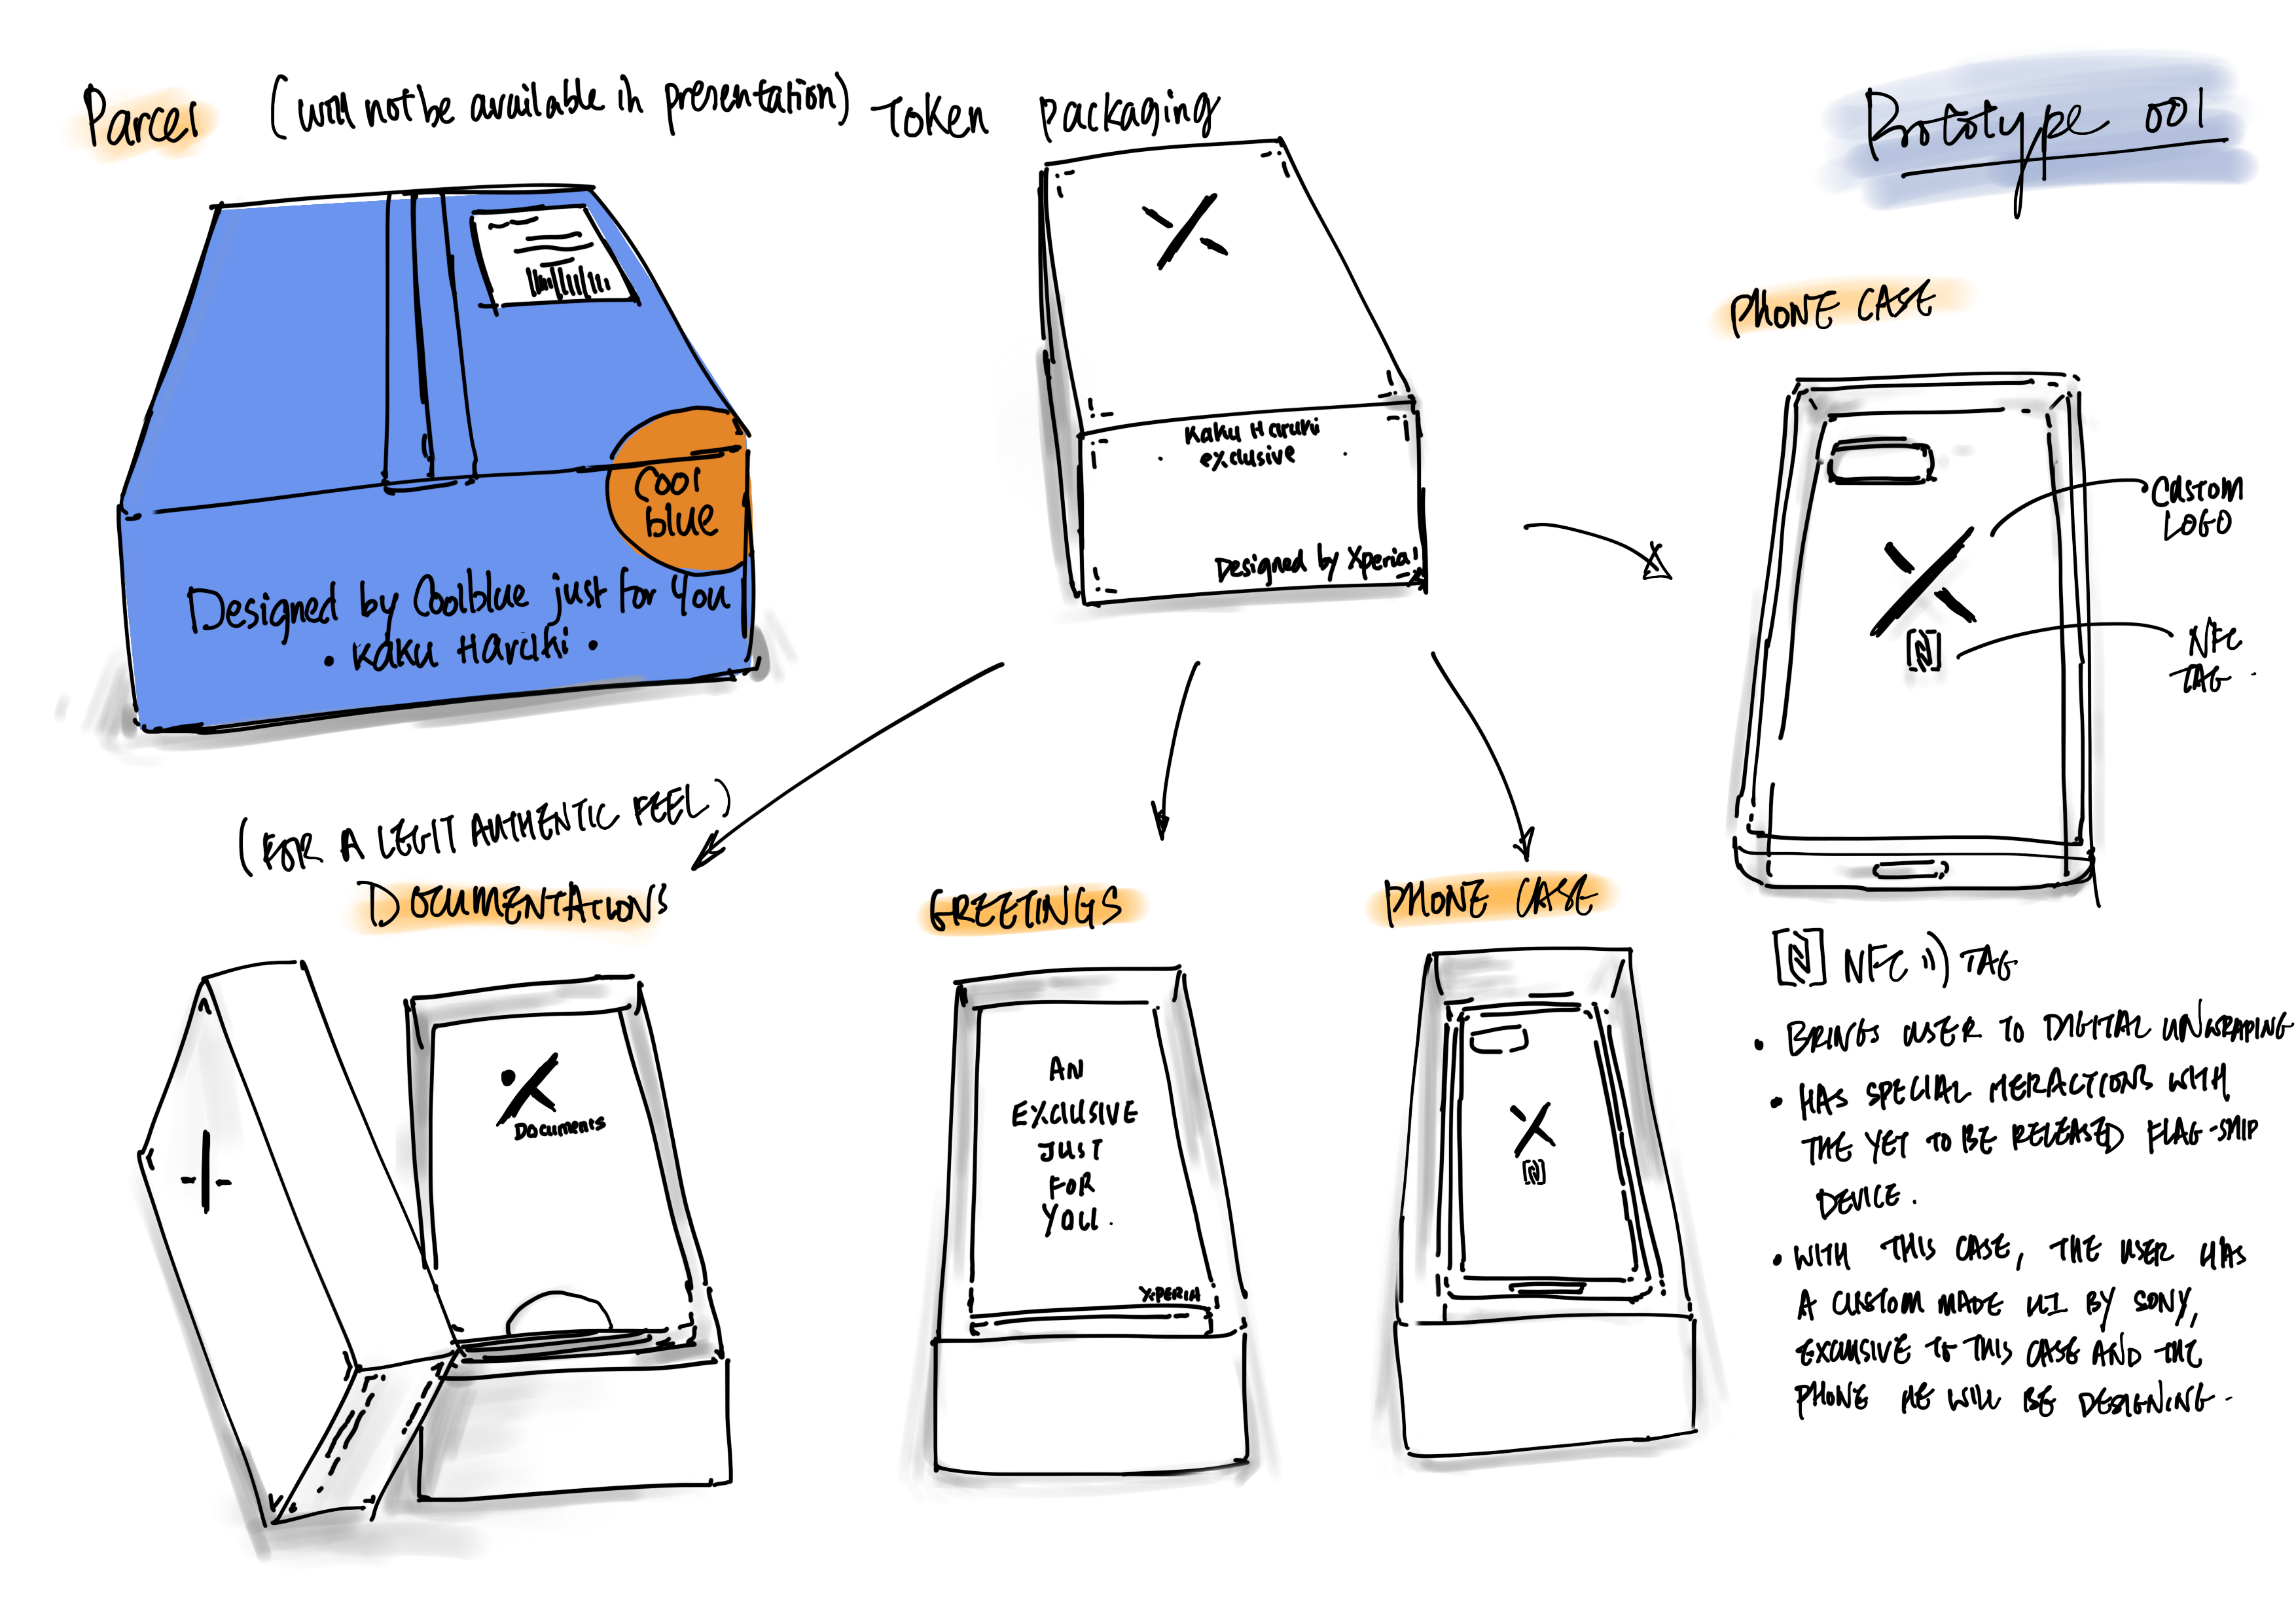 Parcel (will not be available in presentation)
Token packaging
Prototype 001
Cool
blue
Designed by Coolblue just for You
• Kaku Haruki •
Kaku Haruki
exclusive
Designed by Xperia
PHONE CASE
CUSTOM
LOGO
NFC
TAG
(FOR A LEGIT AUTHENTIC FEEL)
DOCUMENTATIONS
Documents
GREETINGS
AN
EXCLUSIVE
JUST
FOR
YOU.
XPERIA
PHONE CASE
NFC TAG
• BRINGS USER TO DIGITAL UNWRAPING
• HAS SPECIAL INERACTIONS WITH
THE YET TO BE RELEASED FLAG-SHIP
DEVICE.
• WITH THIS CASE, THE USER HAS
A CUSTOM MADE UI BY SONY,
EXCLUSIVE TO THIS CASE AND THE
PHONE HE WILL BE DESIGNING.